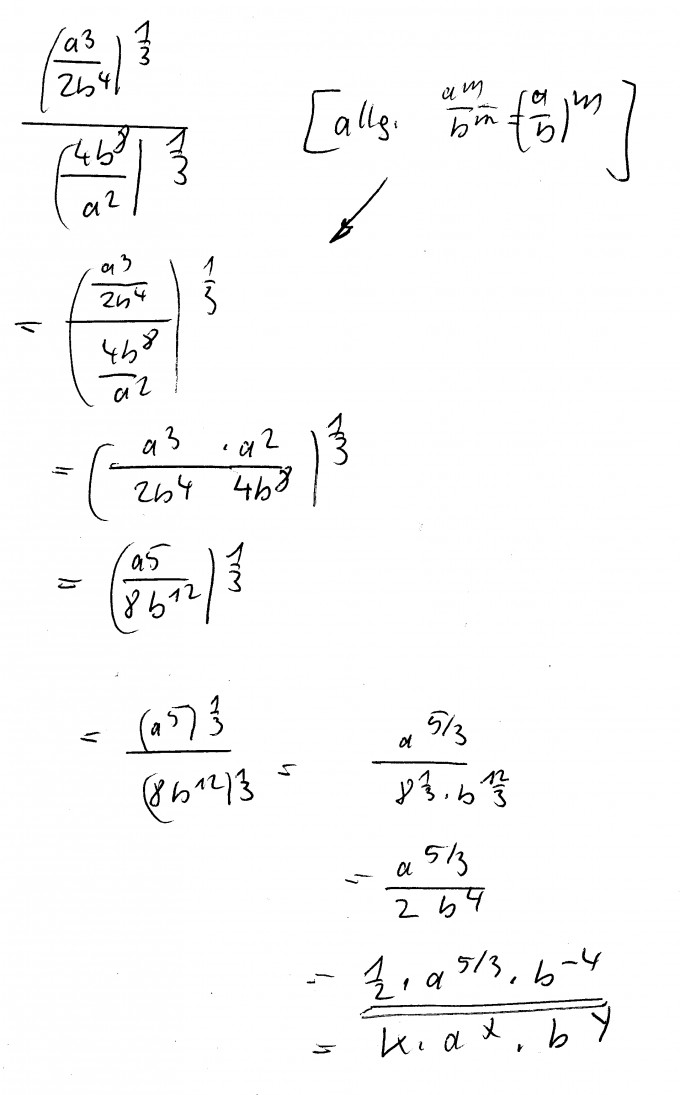 (a^3/(2b^4))^(1/3) / (4b^8/a^2)^(1/3) [allg. a^m/b^m = (a/b)^m]
= ((a^3/(2b^4)) / (4b^8/a^2))^(1/3)
= (a^3 · a^2 / (2b^4 4b^8))^(1/3)
= (a^5/(8b^12))^(1/3)
= (a^5)^(1/3) / (8b^12)^(1/3) = a^(5/3) / (8^(1/3) · b^(12/3))
= a^(5/3) / (2 b^4)
= 1/2 · a^(5/3) · b^(-4)
= k · a^x · b^y